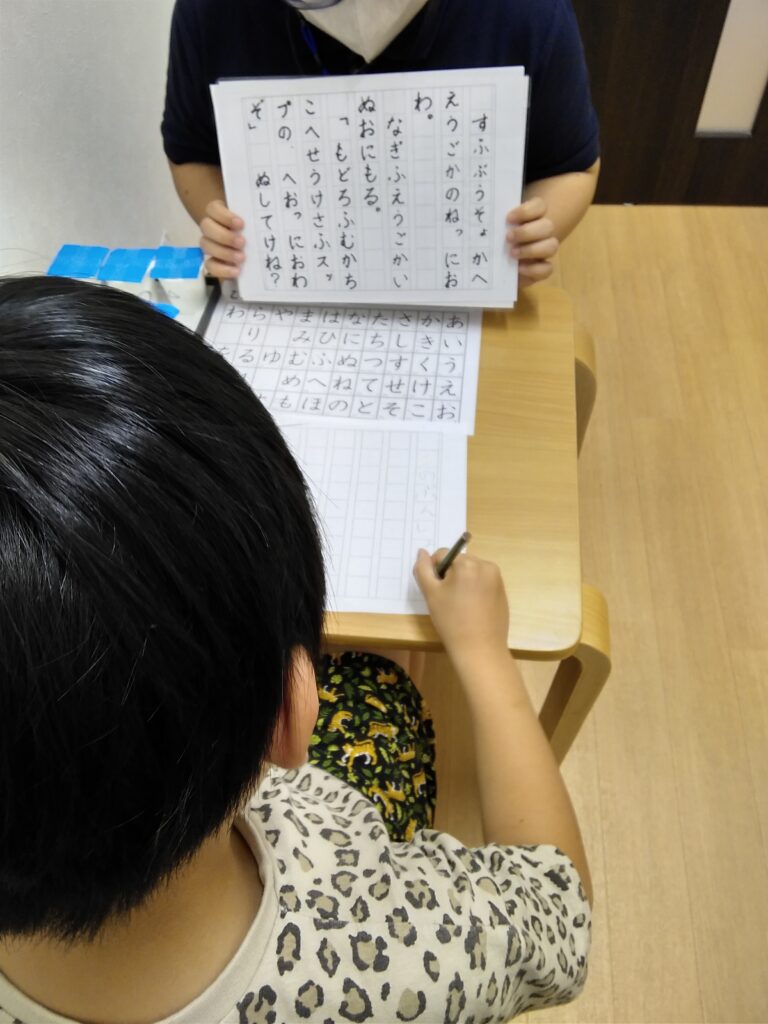 すふぶうそょ かへ
えうごかのねっ にお
わ。
なぎふえうごかい
ぬおにもる。
「もどろふむかち
こへせうけさふスッ
プの、 へおっ におわ
ぞ」 ぬしてけね?
あいうえお
かきくけこ
さしすせそ
たちつてと
なにぬねの
はひふへほ
まみむめも
や ゆ
らりる
わ